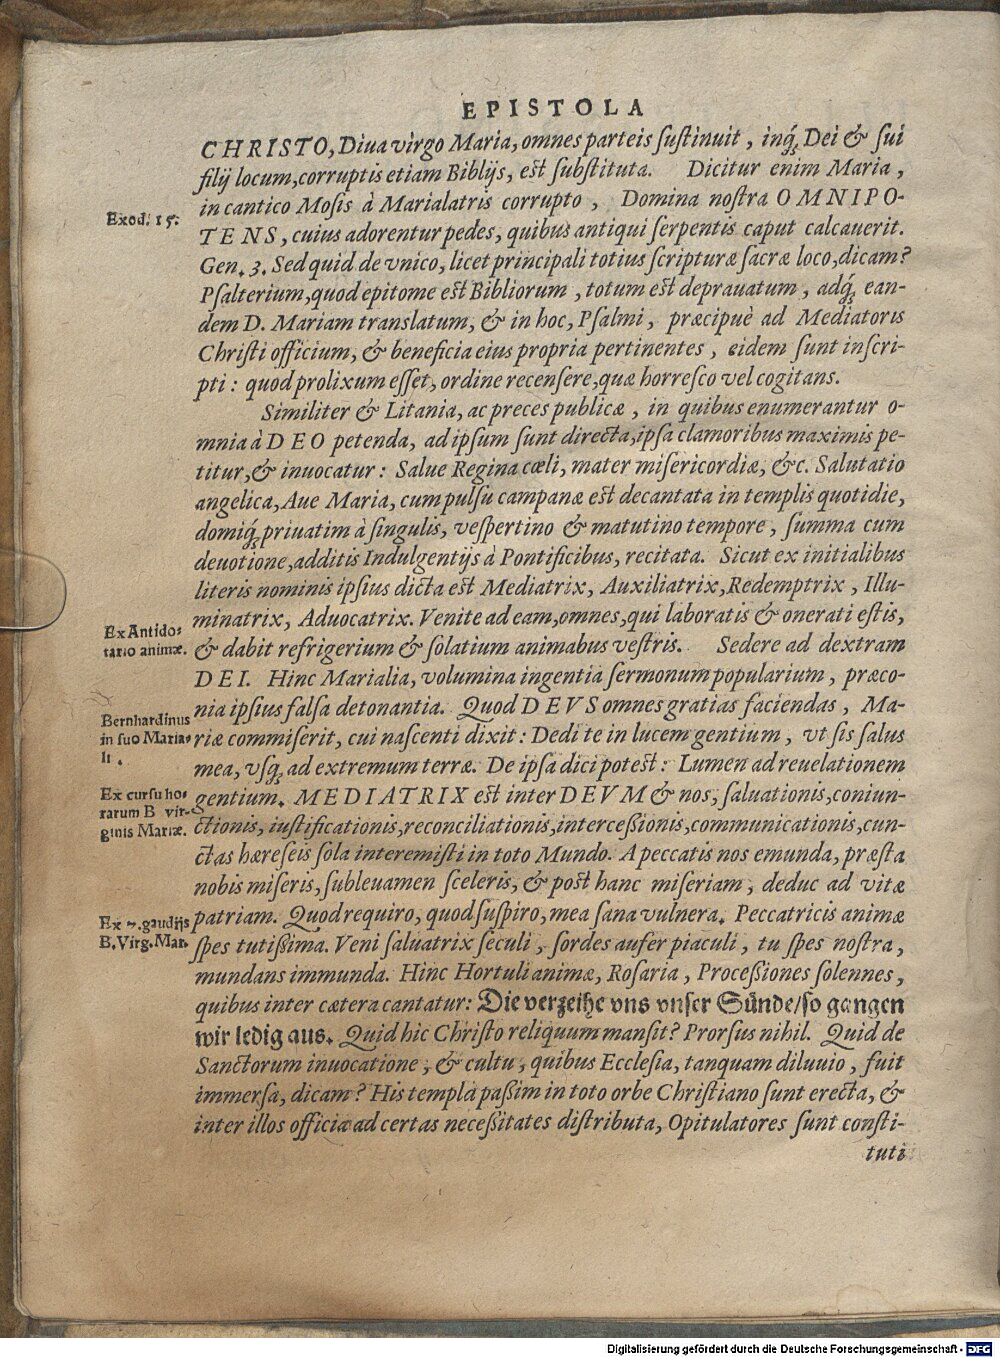 EPISTOLA
CHRISTO, Diua virgo Maria, omnes parteis ſuſtinuit, inq́; Dei & ſui
filij locum, corruptis etiam Biblijs, eſt ſubſtituta. Dicitur enim Maria,
in cantico Moſis à Marialatris corrupto, Domina noſtra OMNIPO-
Exod. 15.
TENS, cuius adorentur pedes, quibus antiqui ſerpentis caput calcauerit.
Gen. 3. Sed quid de vnico, licet principali totius ſcripturæ ſacræ loco, dicam?
Pſalterium, quod epitome eſt Bibliorum, totum eſt deprauatum, adq́; ean-
dem D. Mariam translatum, & in hoc, Pſalmi, præcipuè ad Mediatoris
Chriſti officium, & beneficia eius propria pertinentes, eidem ſunt inſcri-
pti: quod prolixum eſſet, ordine recenſere, quæ horreſco vel cogitans.
Similiter & Litania, ac preces publicæ, in quibus enumerantur o-
mnia à DEO petenda, ad ipſum ſunt directa, ipſa clamoribus maximis pe-
titur, & inuocatur: Salue Regina cœli, mater miſericordiæ, &c. Salutatio
angelica, Aue Maria, cum pulſu campanæ eſt decantata in templis quotidie,
domiq́; priuatim à ſingulis, veſpertino & matutino tempore, ſumma cum
deuotione, additis Indulgentijs à Pontificibus, recitata. Sicut ex initialibus
literis nominis ipſius dicta eſt Mediatrix, Auxiliatrix, Redemptrix, Illu-
minatrix, Aduocatrix. Venite ad eam, omnes, qui laboratis & onerati eſtis,
Ex Antido-
tario animæ.
& dabit refrigerium & ſolatium animabus veſtris. Sedere ad dextram
DEI. Hinc Marialia, volumina ingentia ſermonum popularium, præco-
nia ipſius falſa detonantia. Quod DEVS omnes gratias faciendas, Ma-
Bernhardinus
in ſuo Maria-
li.
riæ commiſerit, cui naſcenti dixit: Dedi te in lucem gentium, vt ſis ſalus
mea, vſq́; ad extremum terræ. De ipſa dici poteſt: Lumen ad reuelationem
gentium. MEDIATRIX eſt inter DEVM & nos, ſaluationis, coniun-
Ex curſu ho-
rarum B. vir-
ginis Mariæ.
ctionis, iuſtificationis, reconciliationis, interceßionis, communicationis, cun-
ctas hæreſeis ſola interemiſti in toto Mundo. A peccatis nos emunda, præſta
nobis miſeris, ſubleuamen ſceleris, & poſt hanc miſeriam, deduc ad vitæ
patriam. Quod requiro, quod ſuſpiro, mea ſana vulnera. Peccatricis animæ
Ex 7. gaudijs
B. Virg. Mar.
ſpes tutißima. Veni ſaluatrix ſeculi, ſordes aufer piaculi, tu ſpes noſtra,
mundans immunda. Hinc Hortuli animæ, Roſaria, Proceßiones ſolennes,
quibus inter cætera cantatur: Die verzeihe vns vnſer Sünde/ſo gangen
wir ledig aus. Quid hic Chriſto reliquum manſit? Prorſus nihil. Quid de
Sanctorum inuocatione, & cultu, quibus Eccleſia, tanquam diluuio, fuit
immerſa, dicam? His templa paßim in toto orbe Chriſtiano ſunt erecta, &
inter illos officia ad certas neceßitates diſtributa, Opitulatores ſunt conſti-
tuti
Digitalisierung gefördert durch die Deutsche Forschungsgemeinschaft - DFG